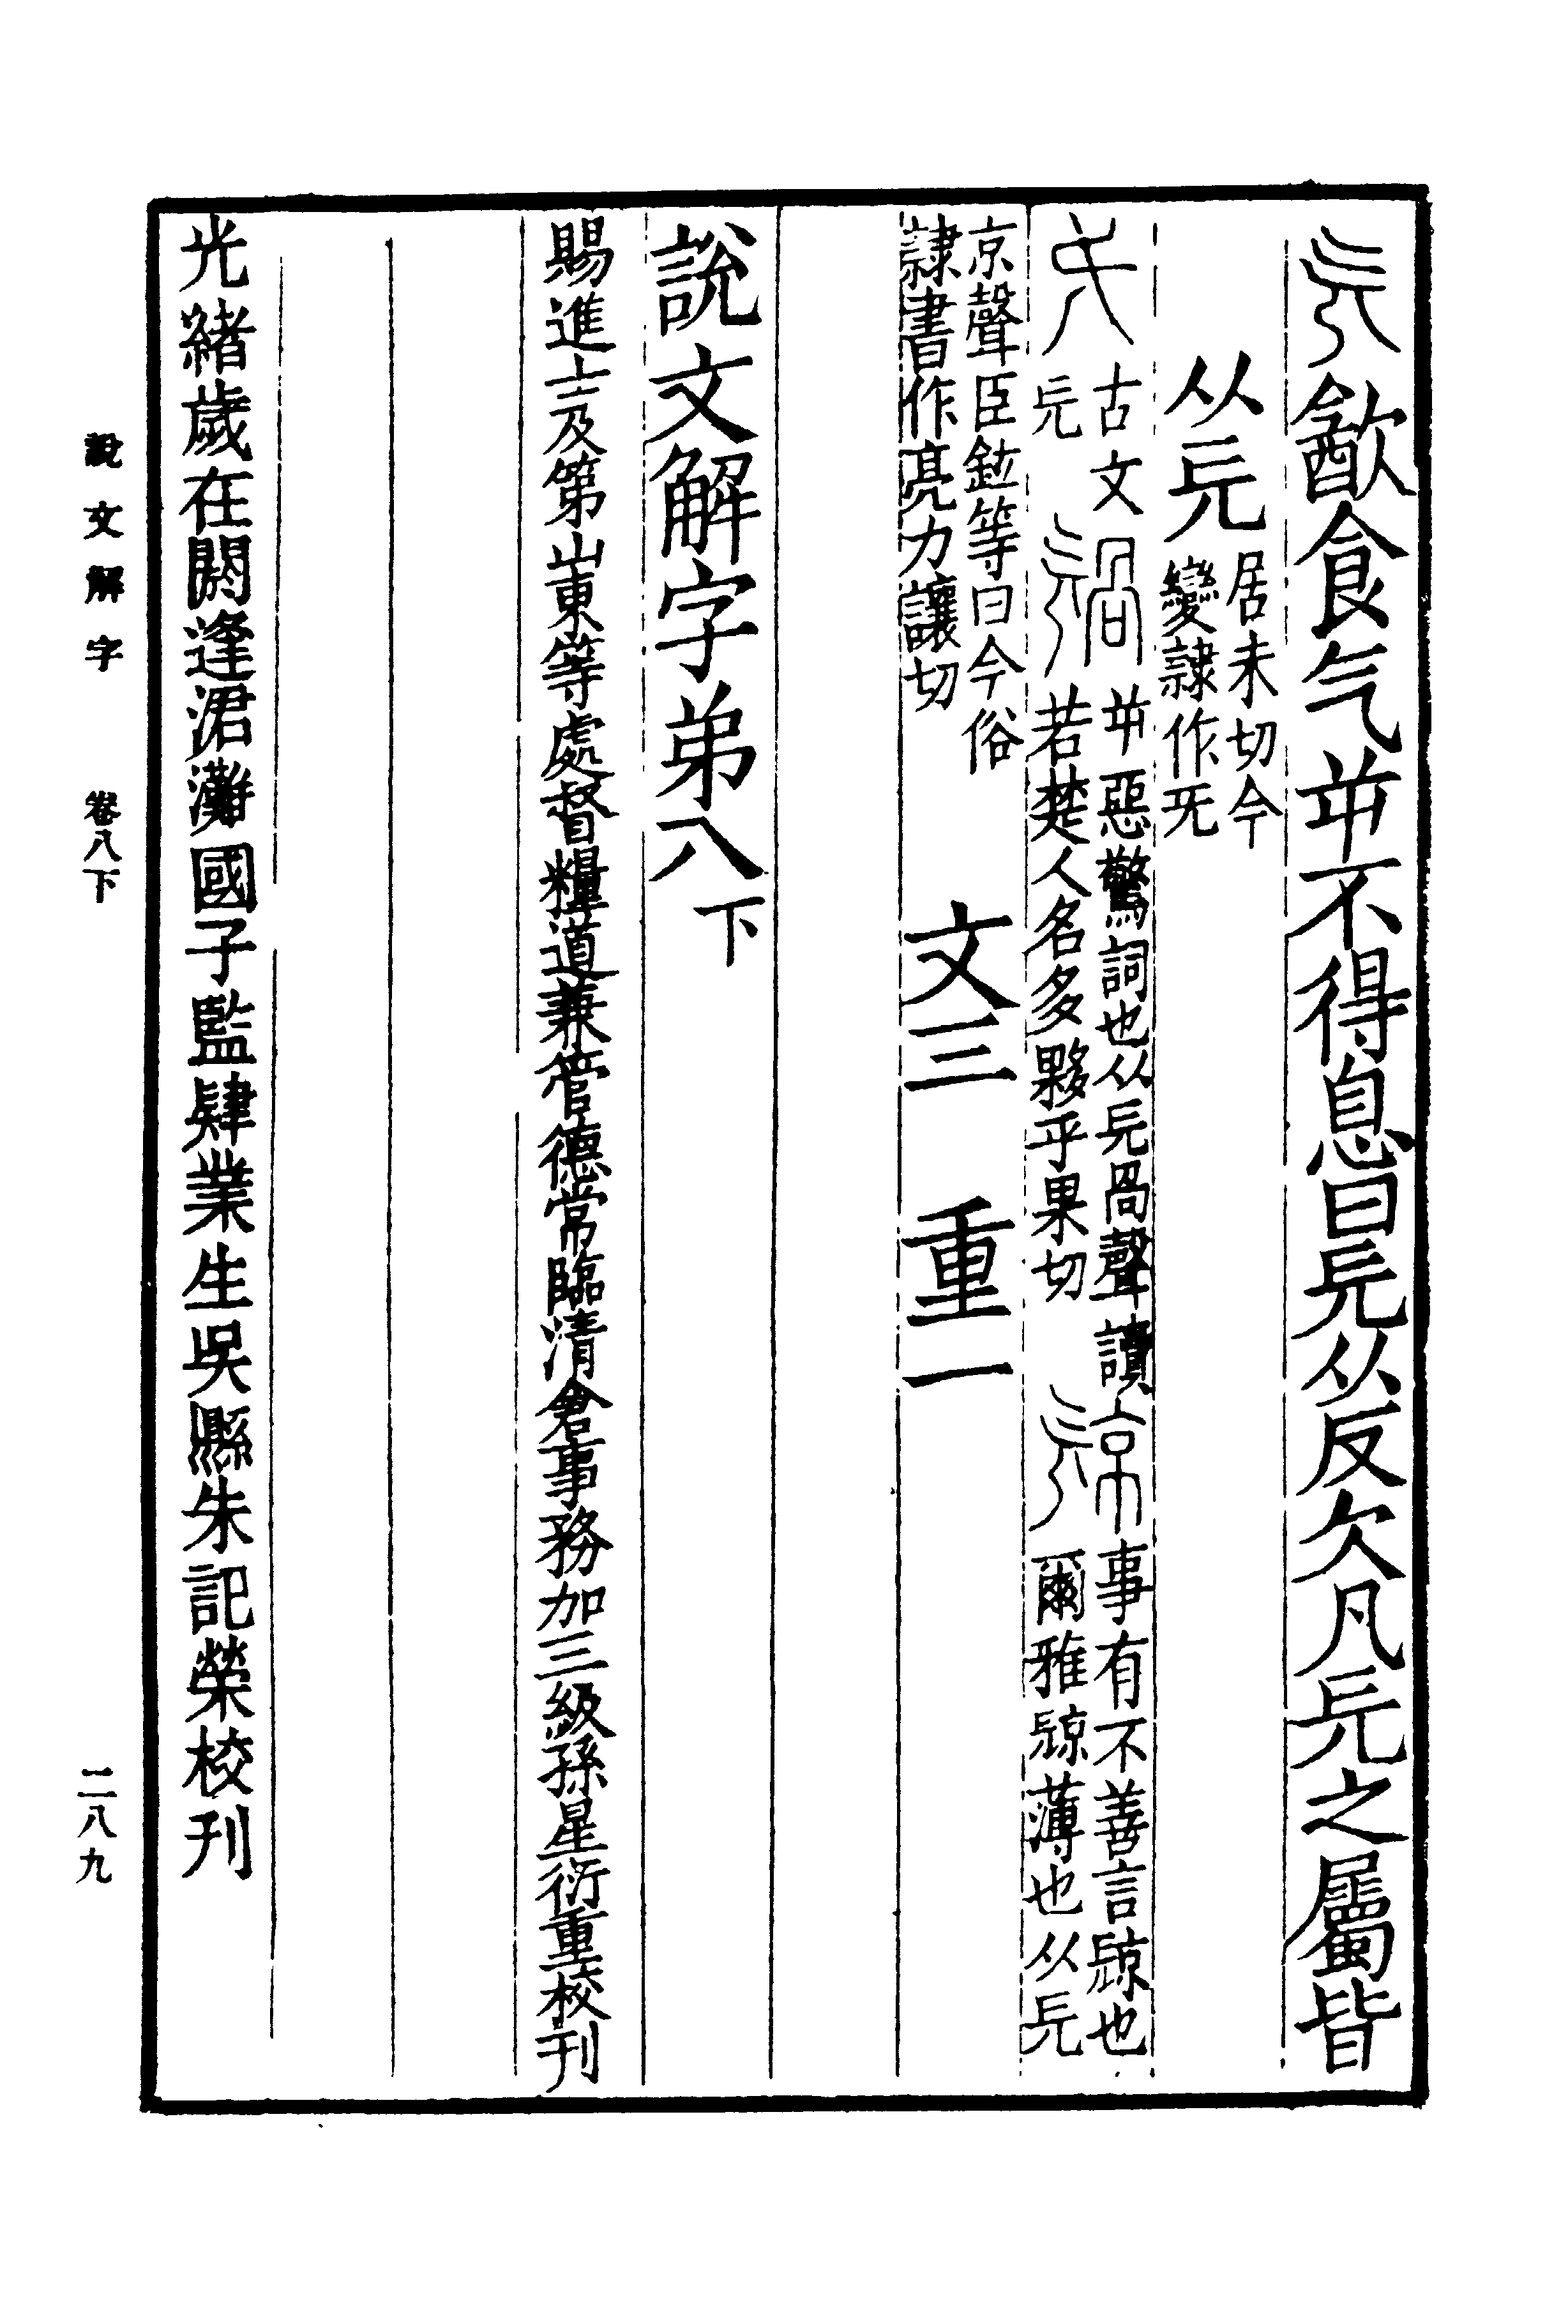 㒫㱃食气屰不得息曰㒫从反欠凡㒫之屬皆
从㒫居未切今
變隸作旡
古文
㒫
屰惡驚詞也从㒫咼聲讀
若楚人名多夥乎果切
事有不善言𩗬也
爾雅𩗬薄也从㒫
京聲臣鉉等曰今俗
隸書作亮力讓切
文三 重一
說文解字弟八下
賜進士及第山東等處督糧道兼管德常臨清倉事務加三級孫星衍重校刊
光緒歲在閼逢涒灘國子監肄業生吳縣朱記榮校刊
說文解字 卷八下 二八九